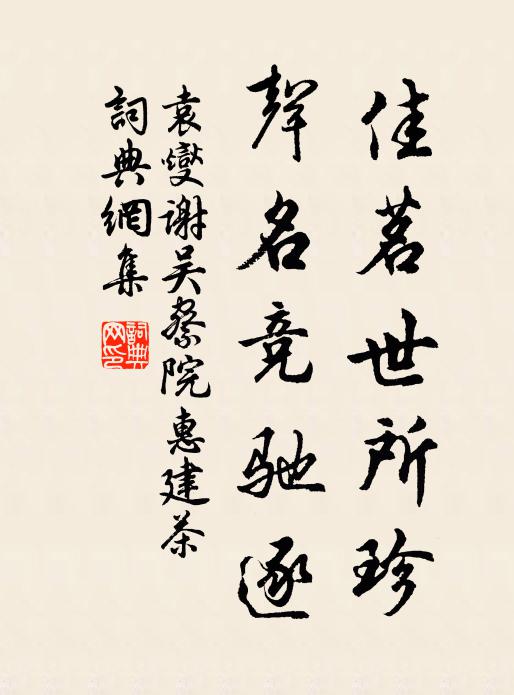 佳茗世所珍
聲名竞馳逐
袁燮謝吴察院惠建茶
詞典網集
詞典网印